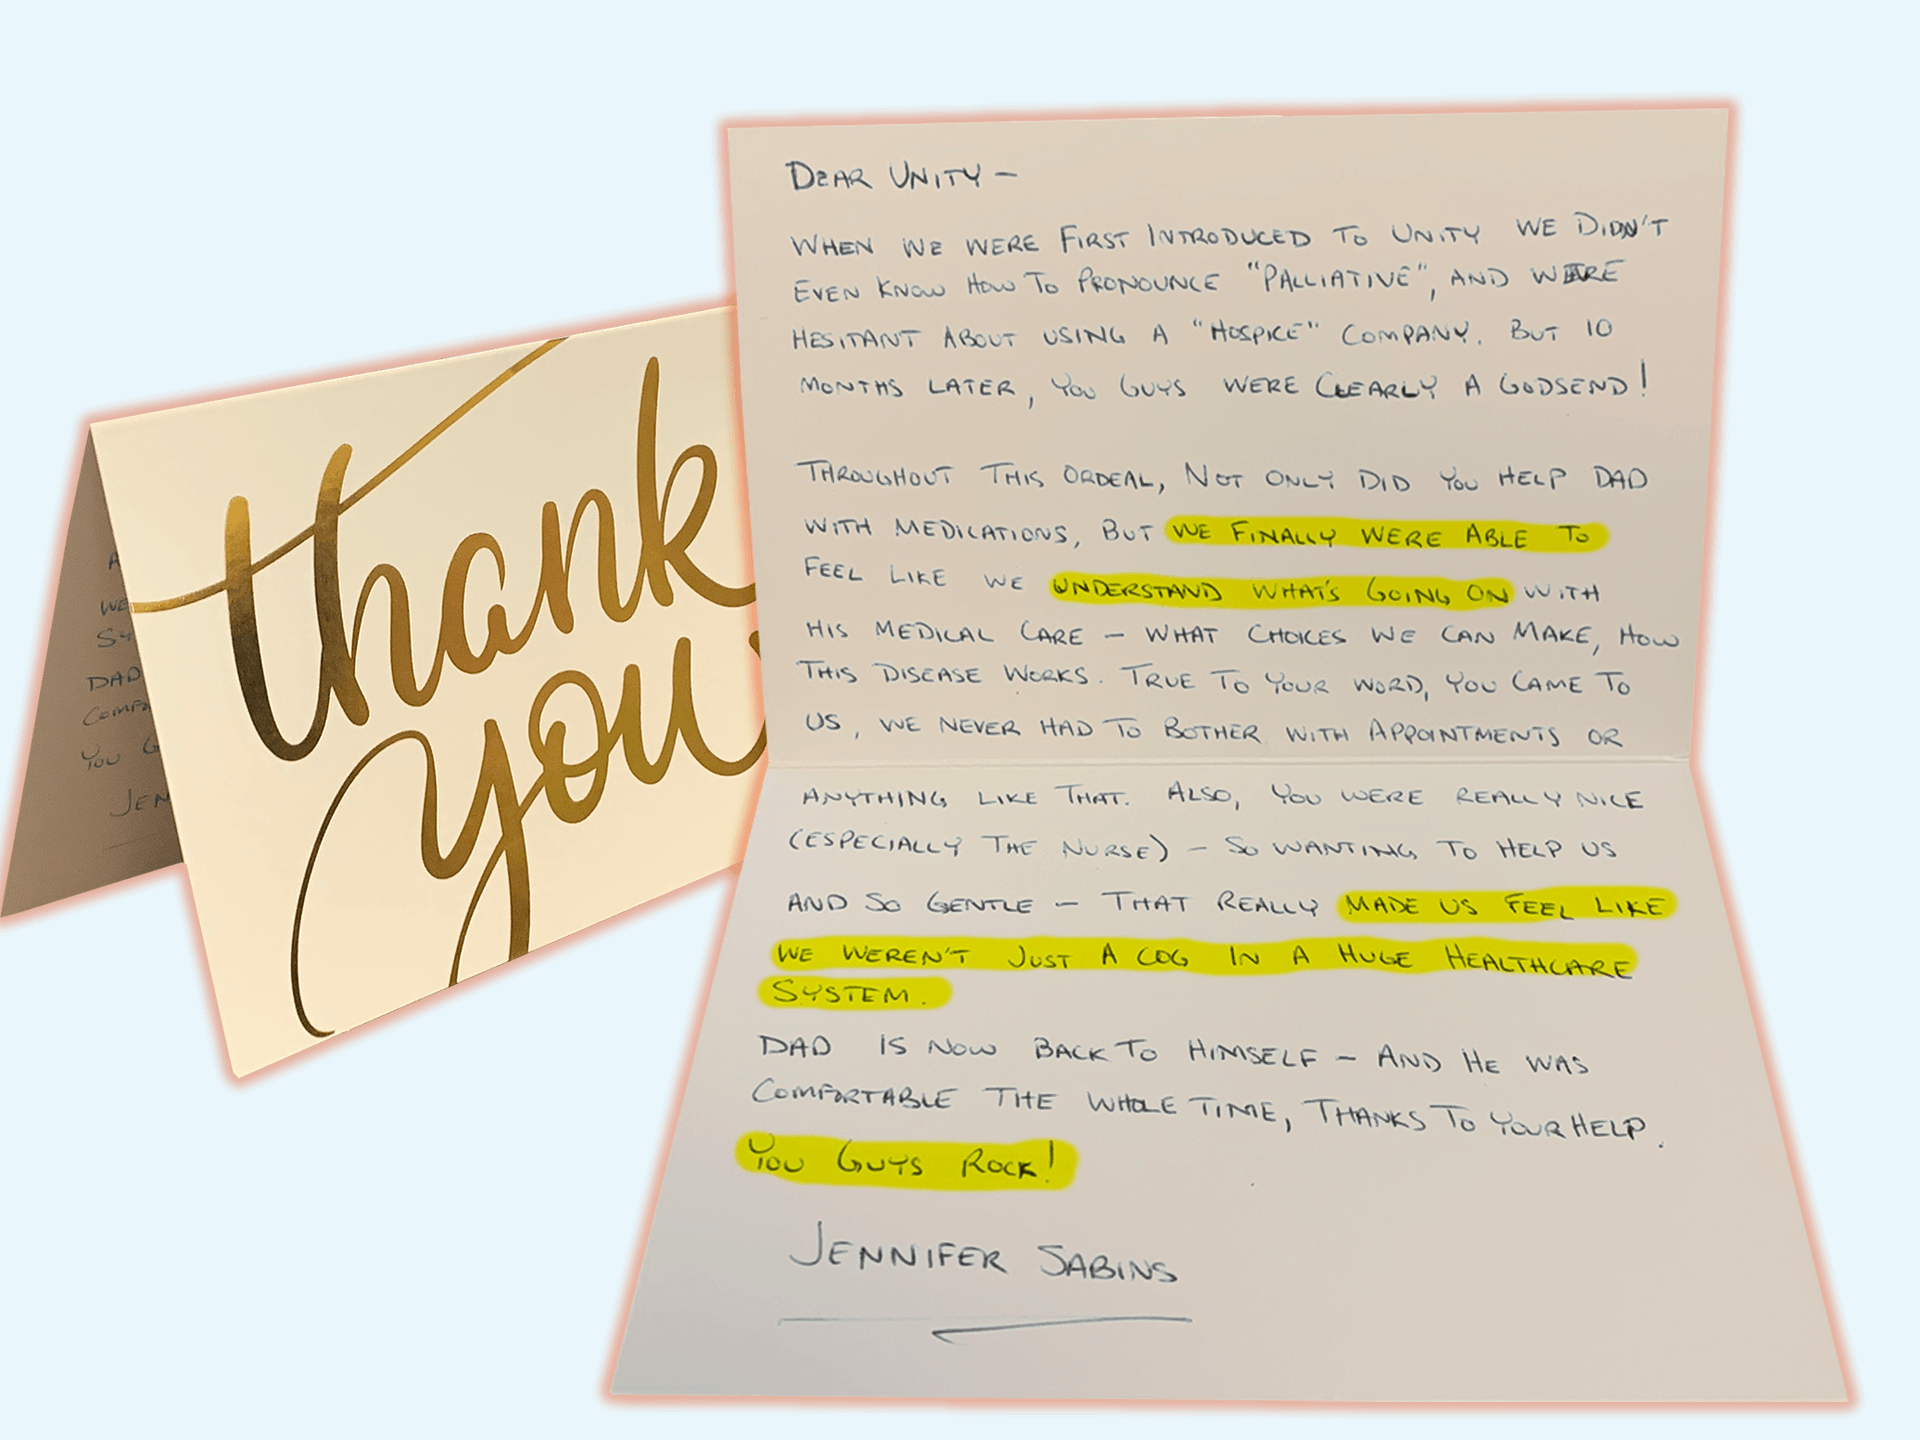 thank
you
A
WE
SY
DAD
COMF
YOU G
JEN
DEAR UNITY –
WHEN WE WERE FIRST INTRODUCED TO UNITY WE DIDN'T
EVEN KNOW HOW TO PRONOUNCE "PALLIATIVE", AND WERE
HESITANT ABOUT USING A "HOSPICE" COMPANY. BUT 10
MONTHS LATER, YOU GUYS WERE CLEARLY A GODSEND!
THROUGHOUT THIS ORDEAL, NOT ONLY DID YOU HELP DAD
WITH MEDICATIONS, BUT WE FINALLY WERE ABLE TO
FEEL LIKE WE UNDERSTAND WHAT'S GOING ON WITH
HIS MEDICAL CARE – WHAT CHOICES WE CAN MAKE, HOW
THIS DISEASE WORKS. TRUE TO YOUR WORD, YOU CAME TO
US, WE NEVER HAD TO BOTHER WITH APPOINTMENTS OR
ANYTHING LIKE THAT. ALSO, YOU WERE REALLY NICE
(ESPECIALLY THE NURSE) – SO WANTING TO HELP US
AND SO GENTLE – THAT REALLY MADE US FEEL LIKE
WE WEREN'T JUST A COG IN A HUGE HEALTHCARE
SYSTEM.
DAD IS NOW BACK TO HIMSELF – AND HE WAS
COMFORTABLE THE WHOLE TIME, THANKS TO YOUR HELP.
YOU GUYS ROCK!
JENNIFER SABINS